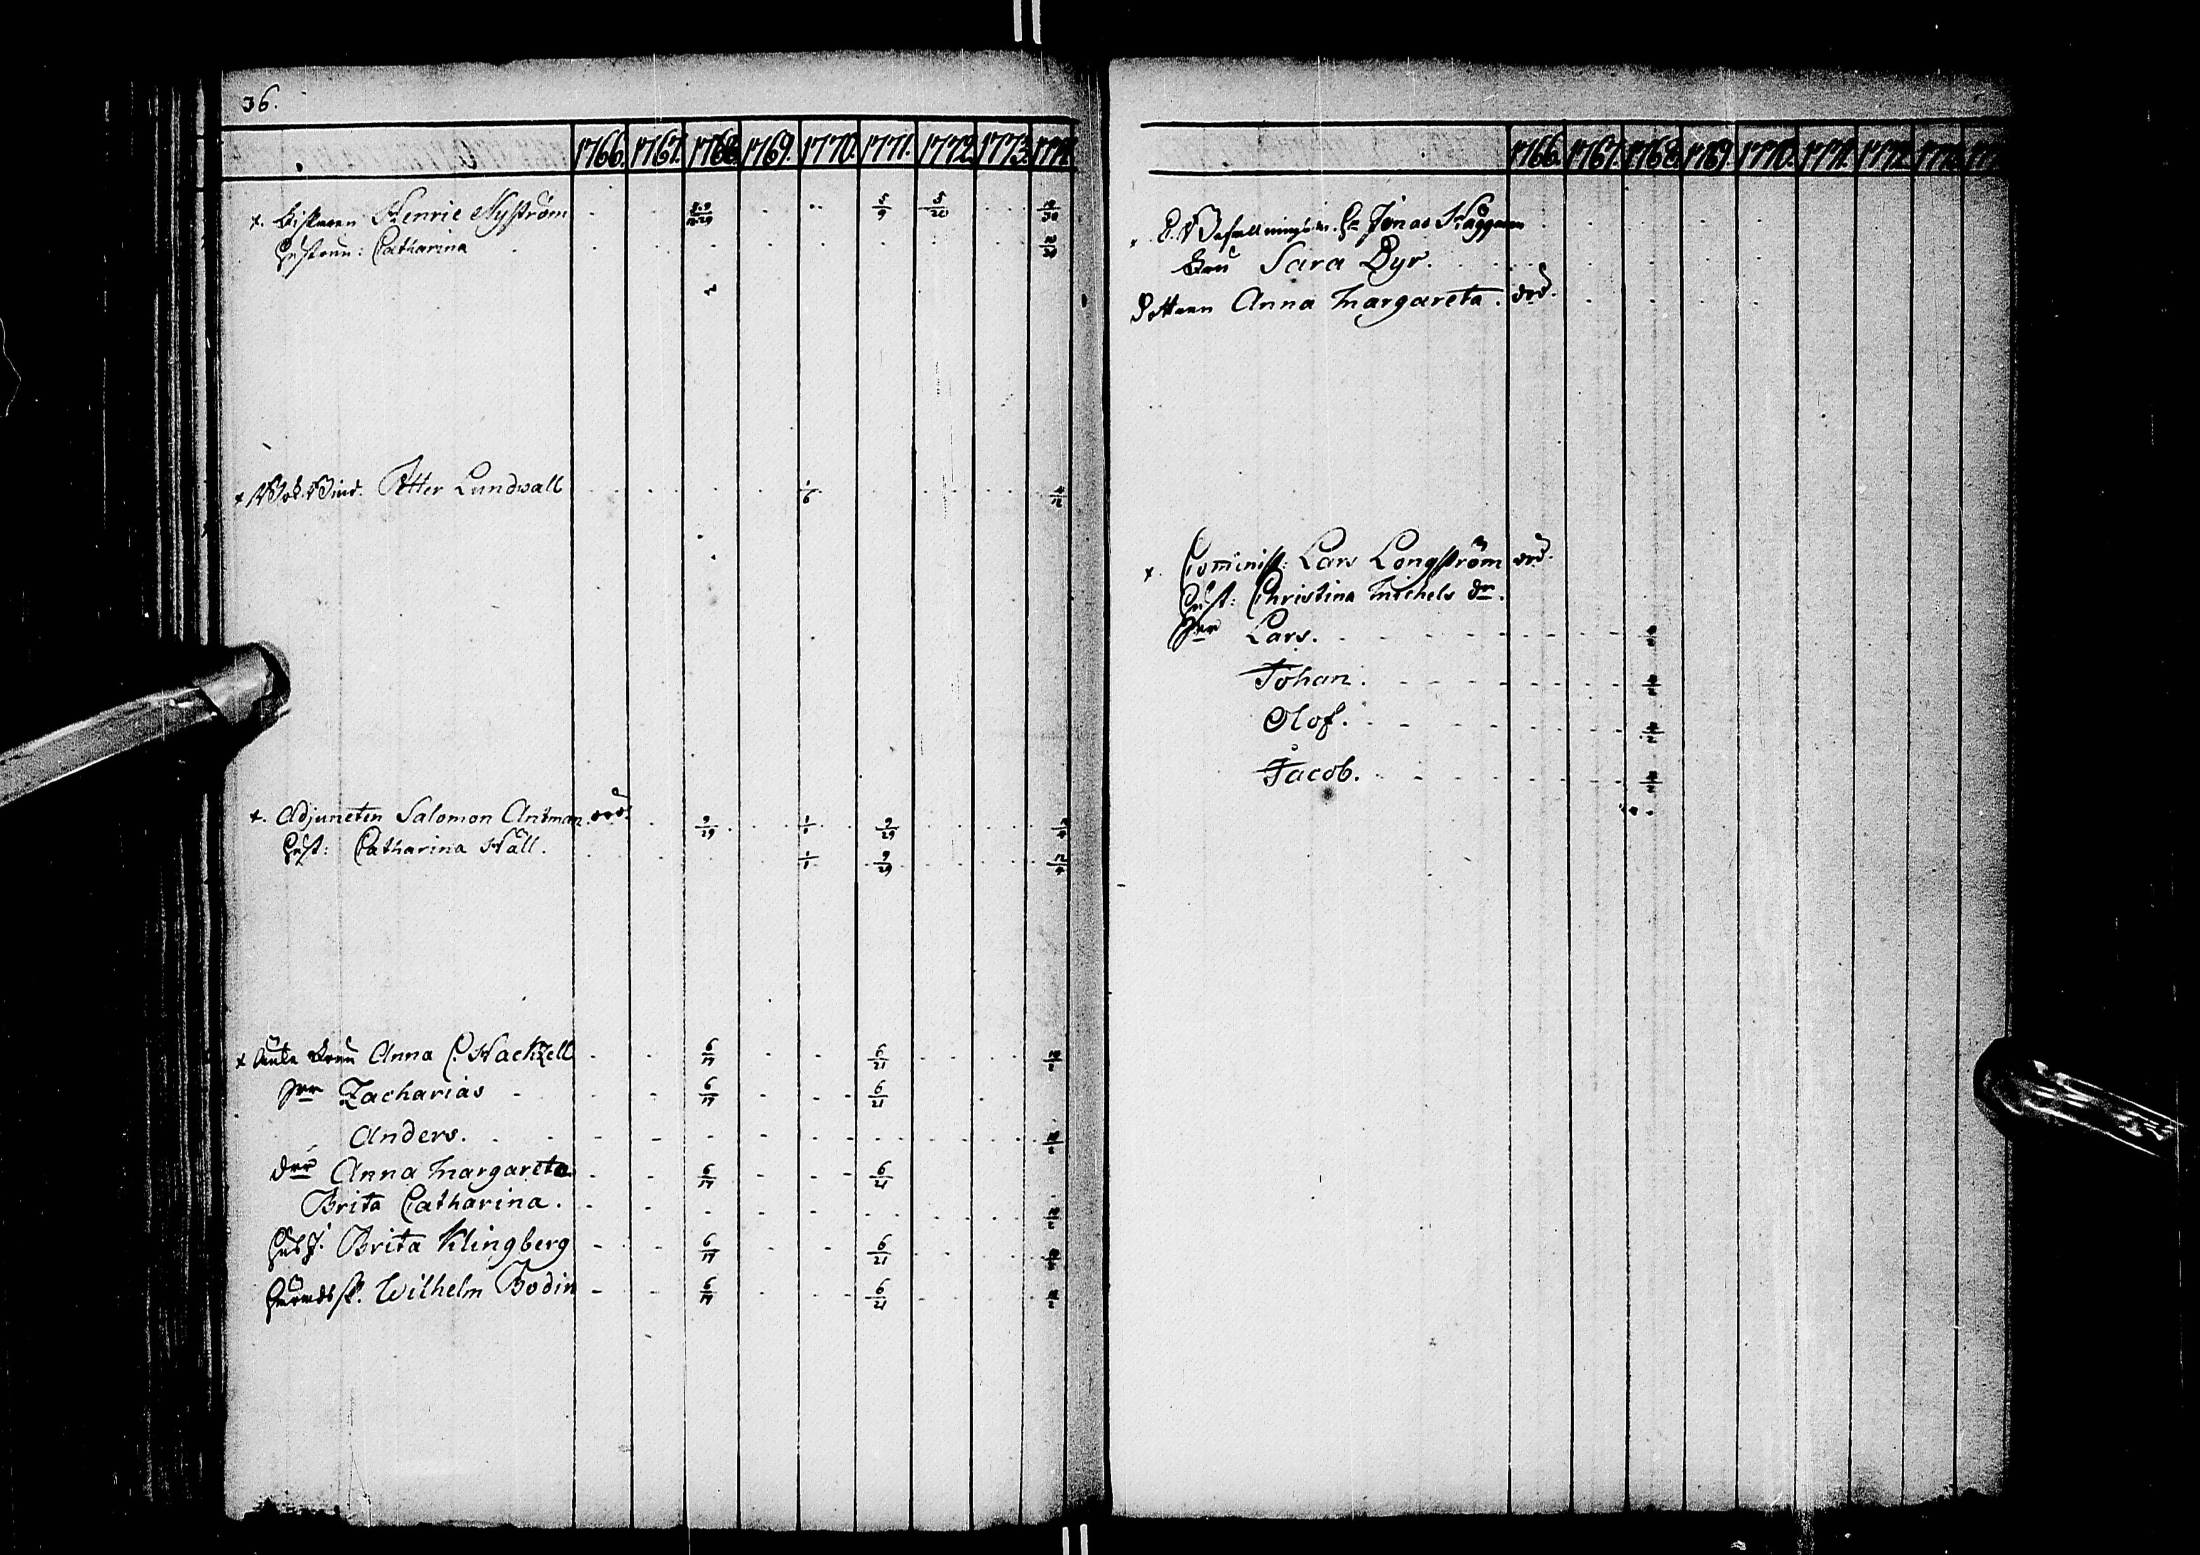 36.
1766. 1767. 1768. 1769. 1770. 1771. 1772. 1773. 1774.
+. Fiskaren Henric Nyström 5 9/29 5/9 5/20 10/30
Hustrun: Catharina 10/30
+ Bok Bind. Petter Lundwall 1/6 4/12
+. Adjuncten Salomon Antman 9/29 1/1 9/29
Hust: Catharina Häll. 1/1 9/29 12/4
+ Änke Frun Anna C. Hackzell 6/17 6/21 10/2
Zacharias 6/17 6/21
Anders. 10/2
Anna Margareta 6/17 6/21
Brita Catharina. 10/2
Brita Klingberg 6/17 6/21 10/2
Wilhelm Bodin 6/17 6/21 10/2
1766. 1767. 1768. 1769. 1770. 1771. 1772. 1773. 177
Befallningsm. Hr Jonas Häggman
Fru Sara Dyr.
Dottren Anna Margareta. död.
+. Commiss: Lars Långström död.
Hust: Christina Michels dr.
Lars.
Johan.
Olof.
Jacob.